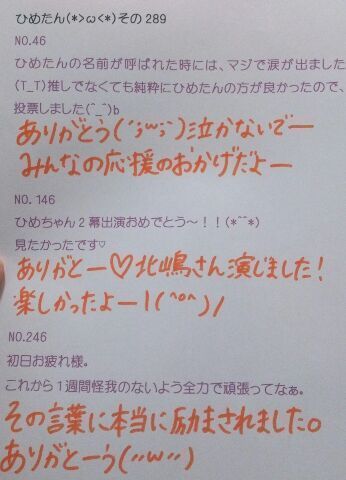 ひめたん(*>ω<*)その 289
NO.46
ひめたんの名前が呼ばれた時には、マジで涙が出ました
(T_T)推しでなくても純粋にひめたんの方が良かったので、
投票しました(^_^)b
ありがとう(´;ω;`)泣かないでー
みんなの応援のおかげだよー
NO. 146
ひめちゃん2幕出演おめでとう～！！(*^^*)
見たかったです♡
ありがとー♡北嶋さん演じました！
楽しかったよー!(^o^)/
NO.246
初日お疲れ様。
これから1週間怪我のないよう全力で頑張ってなぁ。
その言葉に本当に励まされました。
ありがとーう(´´ω``)